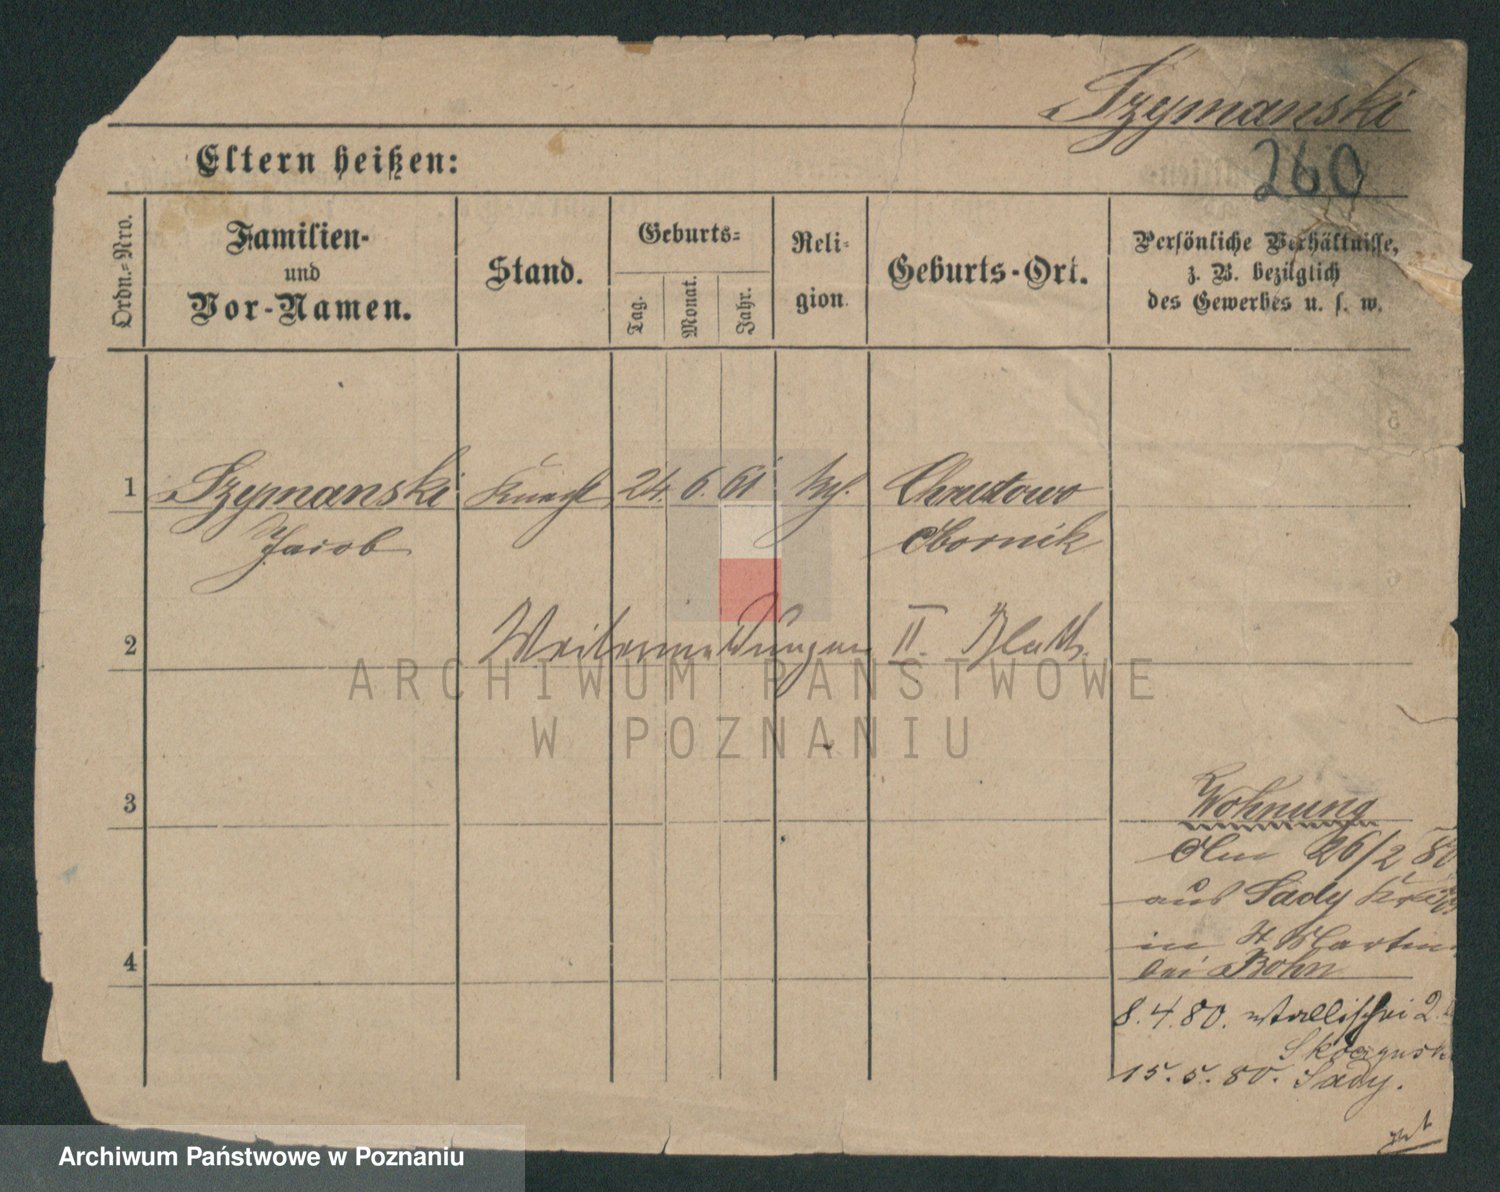 Szymanski
260
Eltern heißen:
Ordn.-Nro.
Familien-
und
Vor-Namen.
Stand.
Geburts-
Tag.
Monat.
Jahr.
Reli-
gion.
Geburts-Ort.
Persönliche Verhältnisse,
z. B. bezüglich
des Gewerbes u. s. w.
1 Szymanski Knecht 24. 6. 61 kth. Chrustowo
Jacob Obornik
2 Weitermeldungen II. Blatt.
3
Wohnung
Am 26/2 80
aus Sady
in St Martin
4 bei Bohn
8.4.80. Wallischei 2.
15.5.80. Sady.
ARCHIWUM PAŃSTWOWE
W POZNANIU
Archiwum Państwowe w Poznaniu